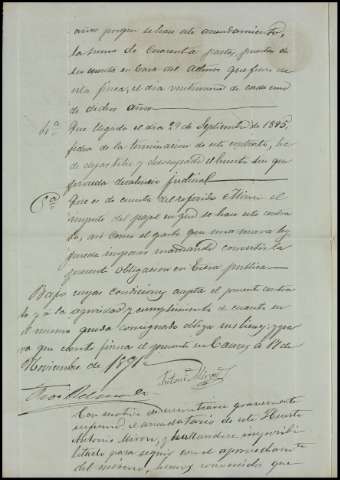 años porque se hace este arrendamiento,
la suma de cuarenta pesetas, puestas de
su cuenta en casa del Administrador que fuere de
esta finca, el día veintinueve de cada uno
de dichos años
6ª Que llegado el día 29 de Septiembre de 1895,
fecha de la terminacion de este contrato, ha
de dejar libre y desocupado el huerto sin que
preceda desahucio judicial
7ª Que es de cuenta del referido Miron el
importe del papel en que se hace este contra
to, así como el gasto que una nueva ley
pueda imponer mandando convertir la
presente obligacion en Escra publica
Bajo cuyas condiciones acepta el presente contra
to y a la seguridad y cumplimiento de cuanto en
el mismo queda consignado obliga sus bienes; y pa
ra que conste firma el presente en a 18 de
Noviembre de 1891
Antonio Miron
Con motivo de encontrarse gravemente
enfermo el arrendatario de este Huerto
Antonio Miron, y hallandose imposibi
litado para seguir con el aprovechamiento
del mismo, hemos convenido que